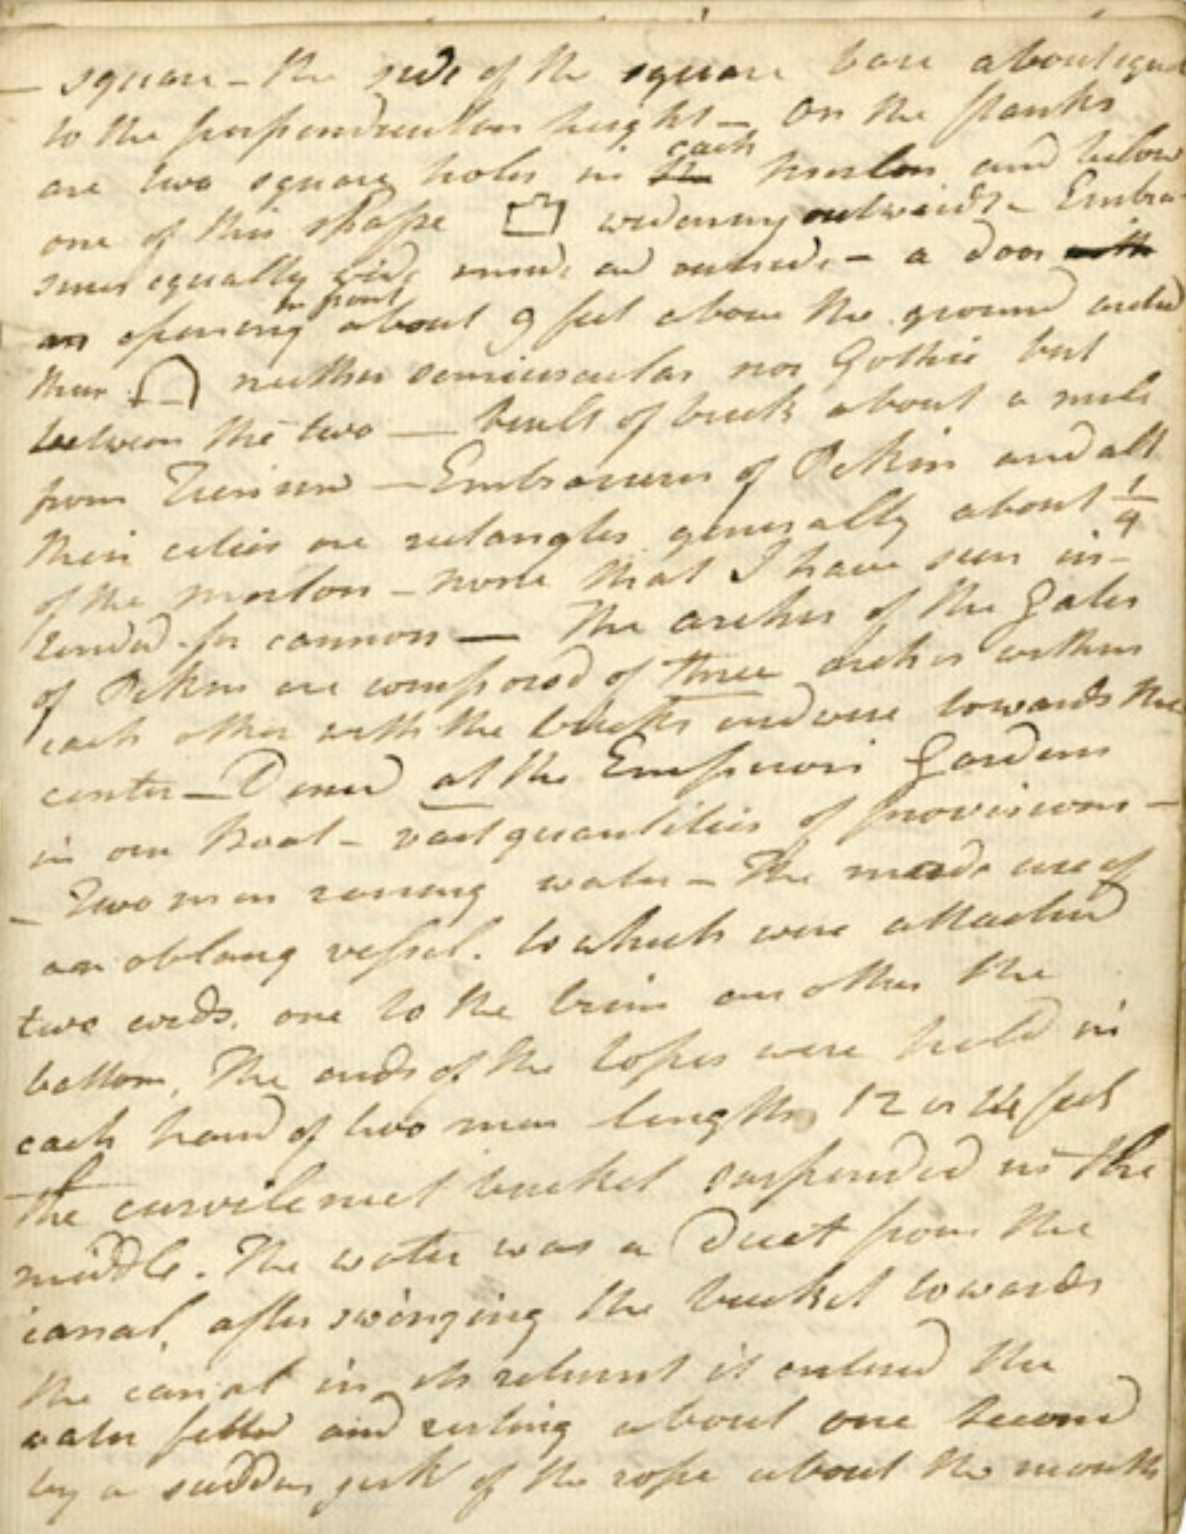 — square — the side of the square base about equal
to the perpendicular height — On the flanks
are two square holes in the each merlon and below
one of this shape widening outwards — Embra-
sures equally wide inside and outside — a door with
an opening in front about 9 feet above the ground arched
thus neither semicircular nor Gothic but
between the two — built of brick about a mile
from — Embrasures of Pekin and all
their cities are rectangles generally about 1/4
of the merlon — none that I have seen in-
tended for cannon — The arches of the Gates
of Pekin are composed of three arches within
each other with the bricks towards the
center — Dined at the Emperors Gardens
in our Boat — vast quantities of provisions —
— Two men raising water — The made use of
an oblong vessel. to which were attached
two cords, one to the brim another the
bottom, The ends of the ropes were held in
each hand of two men length 12 or 14 feet
the bucket suspended in the
middle. The water was a Duct from the
canal, after swinging the bucket towards
the canal in its return it entered the
water filled and resting about one second
by a sudden jerk of the rope about the mouth